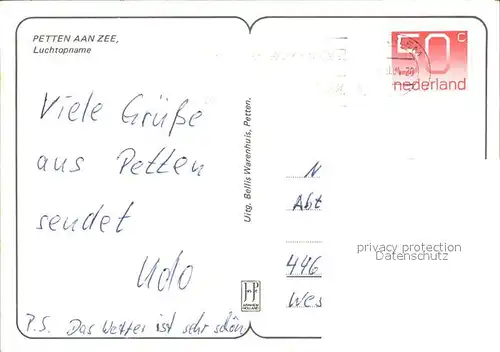 PETTEN AAN ZEE,
Luchtopname
50 c
nederland
Viele Grüße
aus Petten
sendet
Udo
P.S. Das Wetter ist sehr schön
Uitg. Bellis Warenhuis, Petten.
N
Abt
446
Wes
privacy protection
Datenschutz